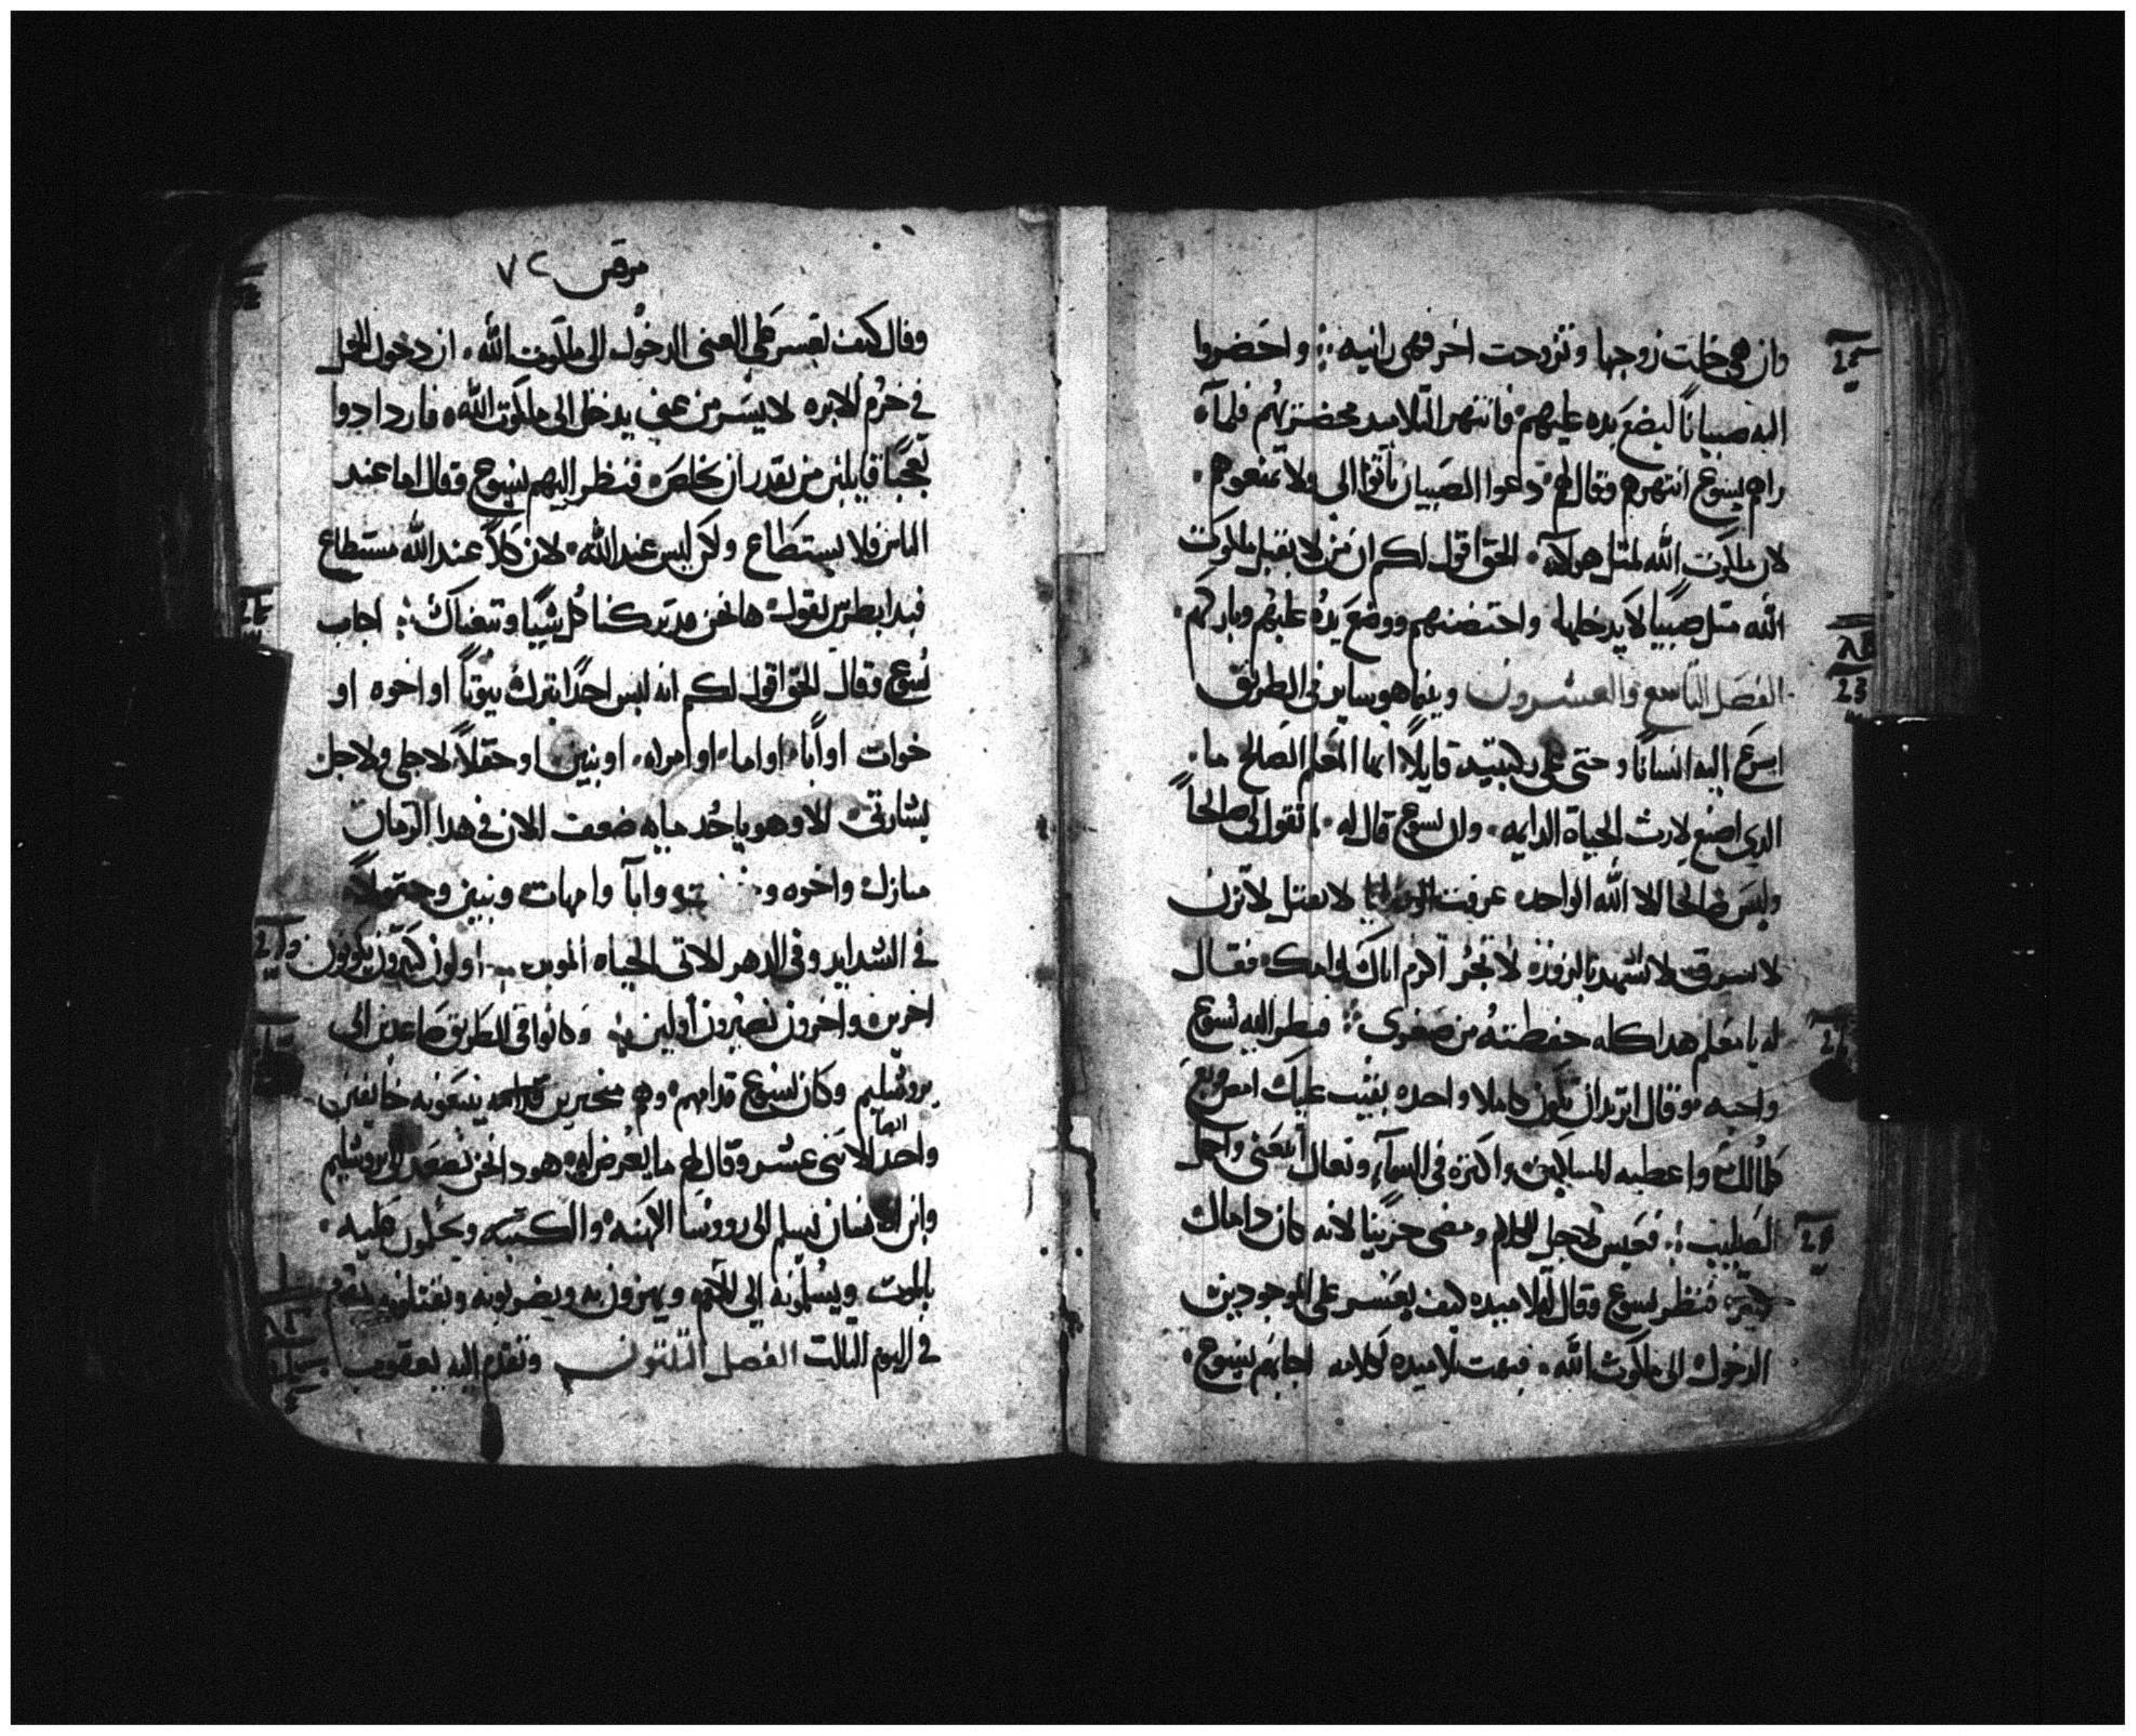 وان هي خلت زوجها وتزوجت اخر فهي زانيه ؞ واحضروا
اليه صبياناً ليضع يده عليهم فانتهر التلاميد محضريهم فلما
راهم يسوع انتهرهم وقال لهم دعوا الصبيان ياتوا الى ولا تمنعوهم
لان ملكوت الله لمثل هولاء الحق اقول لكم ان من لا يقبل ملكوت
الله مثل صبياً لا يدخلها واحتضنهم ووضع يده عليهم وباركهم
الفصل التاسع والعشرون وبينما هو ساير في الطريق
اسرع اليه انساناً وجثى على ركبتيه قايلاً ايها المعلم الصالح ما
الدي اصنع لارث الحياة الدايمه وان يسوع قال له لم تقول لي صالحاً
وليس صالحا الا الله الواحده عرفت الوصايا لا تقتل لا تزن
لا تسرق لا تشهد بالزور لا تجر اكرم اباك وامك فقال
له يا معلم هدا كله حفظته من صغرى فنظر اليه يسوع
واحبه وقال اتريد ان تكون كاملا واحده بقيت عليك امض وبع
كلما لك واعطيه للمساكين واكنزه في السماء وتعال اتبعني واحمل
الصليب فعبس لاجل الكلام ومضى حزيناً لانه كان دا مال
كثير فنظر يسوع وقال لتلاميده كيف يعسر على الموجودين
الدخول الى ملكوت الله فبهت تلاميده لكلامه اجابهم يسوع
مرقس ٧٢
وقال كيف يعسر على الغني الدخول الى ملكوت الله ان دخول الجمل
في خرم الابره لايسر من غني يدخل الى ملكوت الله فازدادوا
تعجباً قايلين من يقدر ان يخلص فنظر اليهم يسوع وقال اما عند
الناس فلا يستطاع ولكن ليس عند الله لان كلاً عند الله مستطاع
فبدا بطرس يقول ها نحن قد تركنا كل شياً وتبعناك اجاب
يسوع وقال الحق اقول لكم انه ليس احداً يترك بيوتاً او اخوه او
خوات او اباً او اما او امراه او بنين او حقلاً لاجلي ولاجل
بشارتي الا وهو ياخد مايه ضعف الان في هدا الزمان
منازل واخوه وابا وامهات وبنين وحقولاً
في الشدايد وفي الدهر الاتى الحياه الموبده اولون كثيرون يكونون
اخرين واخرون يصيرون اولين وكانوا في الطريق صاعدين الى
يروشليم وكان يسوع قدامهم وهم متحيرين يتبعونه خايفين
واحد ايضا الاثني عشر وقال لهم ما يعرض له هودا نحن نصعد الى يروشليم
وابن الانسان يسلم الى رووسا الكهنه والكتبه ويحكمون عليه
بالموت ويسلمونه الى الامم ويهزون به ويضربونه ويقتلونه ويقوم
في اليوم التالت الفصل التلتون وتقدم اليه يعقوب